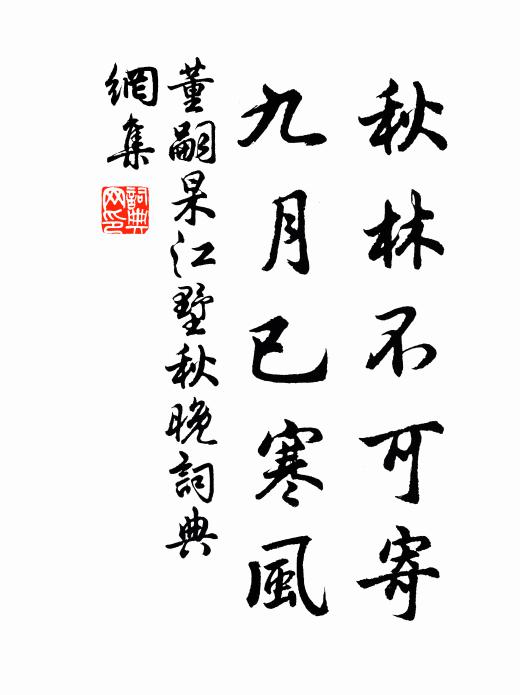 秋林不可寄
九月已寒風
董嗣杲江墅秋晚詞典
網集
詞典網印